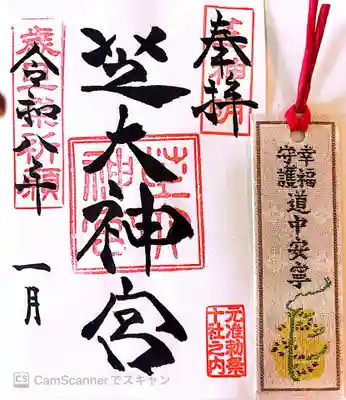 奉拝
芝大神宮
令和八年
一月
祈願
元准勅祭
十社之内
幸福
守護
道中安寧
CS CamScannerでスキャン